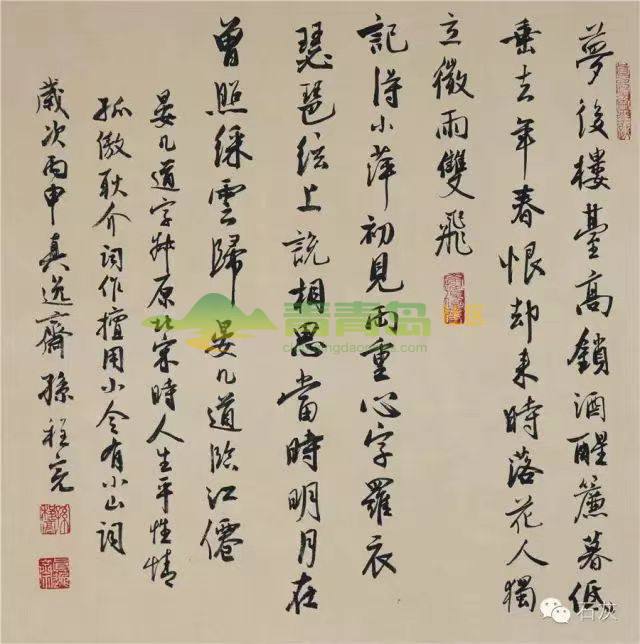 夢後樓臺高鎖酒醒簾幕低
垂去年春恨却来時落花人獨
立微雨雙飛
記得小萍初見兩重心字羅衣
琵琶絃上說相思當時明月在
曾照綵雲歸 晏几道臨江僊
晏几道字叔原北宋時人生平性情
孤傲耿介詞作擅用小令有小山詞
歲次丙申真逸齋孫程亮
青青岛社区
石灰